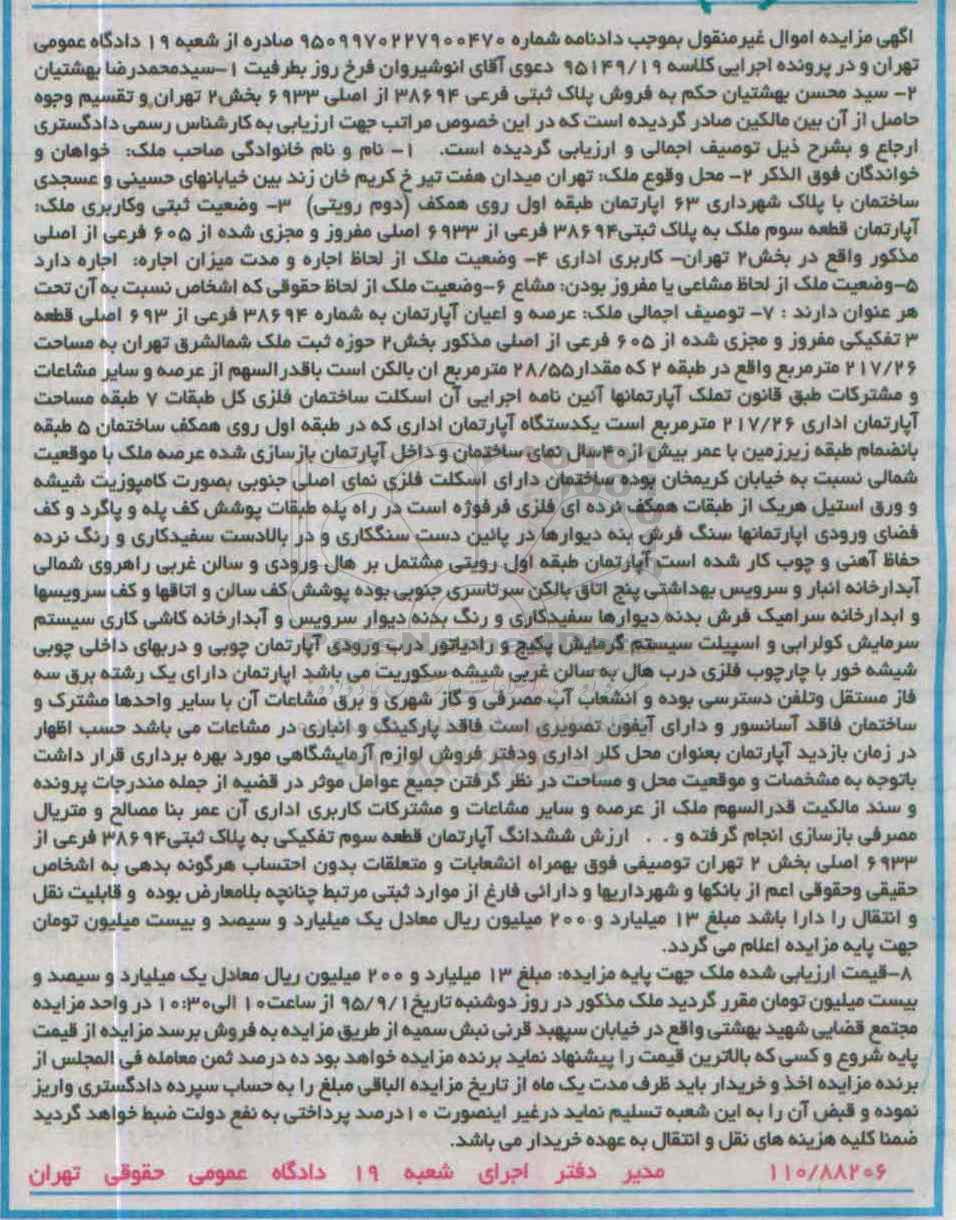 اگهی مزایده اموال غیرمنقول بموجب دادنامه شماره ۹۵۰۹۹۷۰۲۲۷۹۰۰۴۷۰ صادره از شعبه ۱۹ دادگاه عمومی
تهران و در پرونده اجرایی کلاسه ۹۵۱۴۹/۱۹ دعوی آقای انوشیروان فرخ روز بطرفیت ۱-سیدمحمدرضا بهشتیان
۲- سید محسن بهشتیان حکم به فروش پلاک ثبتی فرعی ۳۸۶۹۴ از اصلی ۶۹۳۳ بخش۲ تهران و تقسیم وجوه
حاصل از آن بین مالکین صادر گردیده است که در این خصوص مراتب جهت ارزیابی به کارشناس رسمی دادگستری
ارجاع و بشرح ذیل توصیف اجمالی و ارزیابی گردیده است. ۱- نام و نام خانوادگی صاحب ملک: خواهان و
خواندگان فوق الذکر ۲- محل وقوع ملک: تهران میدان هفت تیر خ کریم خان زند بین خیابانهای حسینی و عسجدی
ساختمان با پلاک شهرداری ۶۳ اپارتمان طبقه اول روی همکف (دوم رویتی) ۳- وضعیت ثبتی وکاربری ملک:
آپارتمان قطعه سوم ملک به پلاک ثبتی۳۸۶۹۴ فرعی از ۶۹۳۳ اصلی مفروز و مجزی شده از ۶۰۵ فرعی از اصلی
مذکور واقع در بخش۲ تهران- کاربری اداری ۴- وضعیت ملک از لحاظ اجاره و مدت میزان اجاره: اجاره دارد
۵-وضعیت ملک از لحاظ مشاعی یا مفروز بودن: مشاع ۶-وضعیت ملک از لحاظ حقوقی که اشخاص نسبت به آن تحت
هر عنوان دارند : ۷- توصیف اجمالی ملک: عرصه و اعیان آپارتمان به شماره ۳۸۶۹۴ فرعی از ۶۹۳ اصلی قطعه
۳ تفکیکی مفروز و مجزی شده از ۶۰۵ فرعی از اصلی مذکور بخش۲ حوزه ثبت ملک شمالشرق تهران به مساحت
۲۱۷/۲۶ مترمربع واقع در طبقه ۲ که مقدار۲۸/۵۵ مترمربع ان بالکن است باقدرالسهم از عرصه و سایر مشاعات
و مشترکات طبق قانون تملک آپارتمانها آئین نامه اجرایی آن اسکلت ساختمان فلزی کل طبقات ۷ طبقه مساحت
آپارتمان اداری ۲۱۷/۲۶ مترمربع است یکدستگاه آپارتمان اداری که در طبقه اول روی همکف ساختمان ۵ طبقه
بانضمام طبقه زیرزمین با عمر بیش از۴۰سال نمای ساختمان و داخل آپارتمان بازسازی شده عرصه ملک با موقعیت
شمالی نسبت به خیابان کریمخان بوده ساختمان دارای اسکلت فلزی نمای اصلی جنوبی بصورت کامپوزیت شیشه
و ورق استیل هریک از طبقات همکف نرده ای فلزی فرفوژه است در راه پله طبقات پوشش کف پله و پاگرد و کف
فضای ورودی اپارتمانها سنگ فرش بنه دیوارها در پائین دست سنگکاری و در بالادست سفیدکاری و رنگ نرده
حفاظ آهنی و چوب کار شده است آپارتمان طبقه اول رویتی مشتمل بر هال ورودی و سالن غربی راهروی شمالی
آبدارخانه انبار و سرویس بهداشتی پنج اتاق بالکن سرتاسری جنوبی بوده پوشش کف سالن و اتاقها و کف سرویسها
و ابدارخانه سرامیک فرش بدنه دیوارها سفیدکاری و رنگ بدنه دیوار سرویس و آبدارخانه کاشی کاری سیستم
سرمایش کولرابی و اسپیلت سیستم گرمایش پکیج و رادیاتور درب ورودی آپارتمان چوبی و دربهای داخلی چوبی
شیشه خور با چارچوب فلزی درب هال به سالن غربی شیشه سکوریت می باشد اپارتمان دارای یک رشته برق سه
فاز مستقل وتلفن دسترسی بوده و انشعاب آب مصرفی و گاز شهری و برق مشاعات آن با سایر واحدها مشترک و
ساختمان فاقد آسانسور و دارای آیفون تصویری است فاقد پارکینگ و انباری در مشاعات می باشد حسب اظهار
در زمان بازدید آپارتمان بعنوان محل کلر اداری ودفتر فروش لوازم آزمایشگاهی مورد بهره برداری قرار داشت
باتوجه به مشخصات و موقعیت محل و مساحت در نظر گرفتن جمیع عوامل موثر در قضیه از جمله مندرجات پرونده
و سند مالکیت قدرالسهم ملک از عرصه و سایر مشاعات و مشترکات کاربری اداری آن عمر بنا مصالح و متریال
مصرفی بازسازی انجام گرفته و . . ارزش ششدانگ آپارتمان قطعه سوم تفکیکی به پلاک ثبتی۳۸۶۹۴ فرعی از
۶۹۳۳ اصلی بخش ۲ تهران توصیفی فوق بهمراه انشعابات و متعلقات بدون احتساب هرگونه بدهی به اشخاص
حقیقی وحقوقی اعم از بانکها و شهرداریها و دارائی فارغ از موارد ثبتی مرتبط چنانچه بلامعارض بوده و قابلیت نقل
و انتقال را دارا باشد مبلغ ۱۳ میلیارد و ۲۰۰ میلیون ریال معادل یک میلیارد و سیصد و بیست میلیون تومان
جهت پایه مزایده اعلام می گردد.
۸-قیمت ارزیابی شده ملک جهت پایه مزایده: مبلغ ۱۳ میلیارد و ۲۰۰ میلیون ریال معادل یک میلیارد و سیصد و
بیست میلیون تومان مقرر گردید ملک مذکور در روز دوشنبه تاریخ۹۵/۹/۱ از ساعت۱۰ الی۱۰:۳۰ در واحد مزایده
مجتمع قضایی شهید بهشتی واقع در خیابان سپهبد قرنی نبش سمیه از طریق مزایده به فروش برسد مزایده از قیمت
پایه شروع و کسی که بالاترین قیمت را پیشنهاد نماید برنده مزایده خواهد بود ده درصد ثمن معامله فی المجلس از
برنده مزایده اخذ و خریدار باید ظرف مدت یک ماه از تاریخ مزایده الباقی مبلغ را به حساب سپرده دادگستری واریز
نموده و قبض آن را به این شعبه تسلیم نماید درغیر اینصورت ۱۰درصد پرداختی به نفع دولت ضبط خواهد گردید
ضمنا کلیه هزینه های نقل و انتقال به عهده خریدار می باشد.
۱۱۰/۸۸۲۰۶ مدیر دفتر اجرای شعبه ۱۹ دادگاه عمومی حقوقی تهران